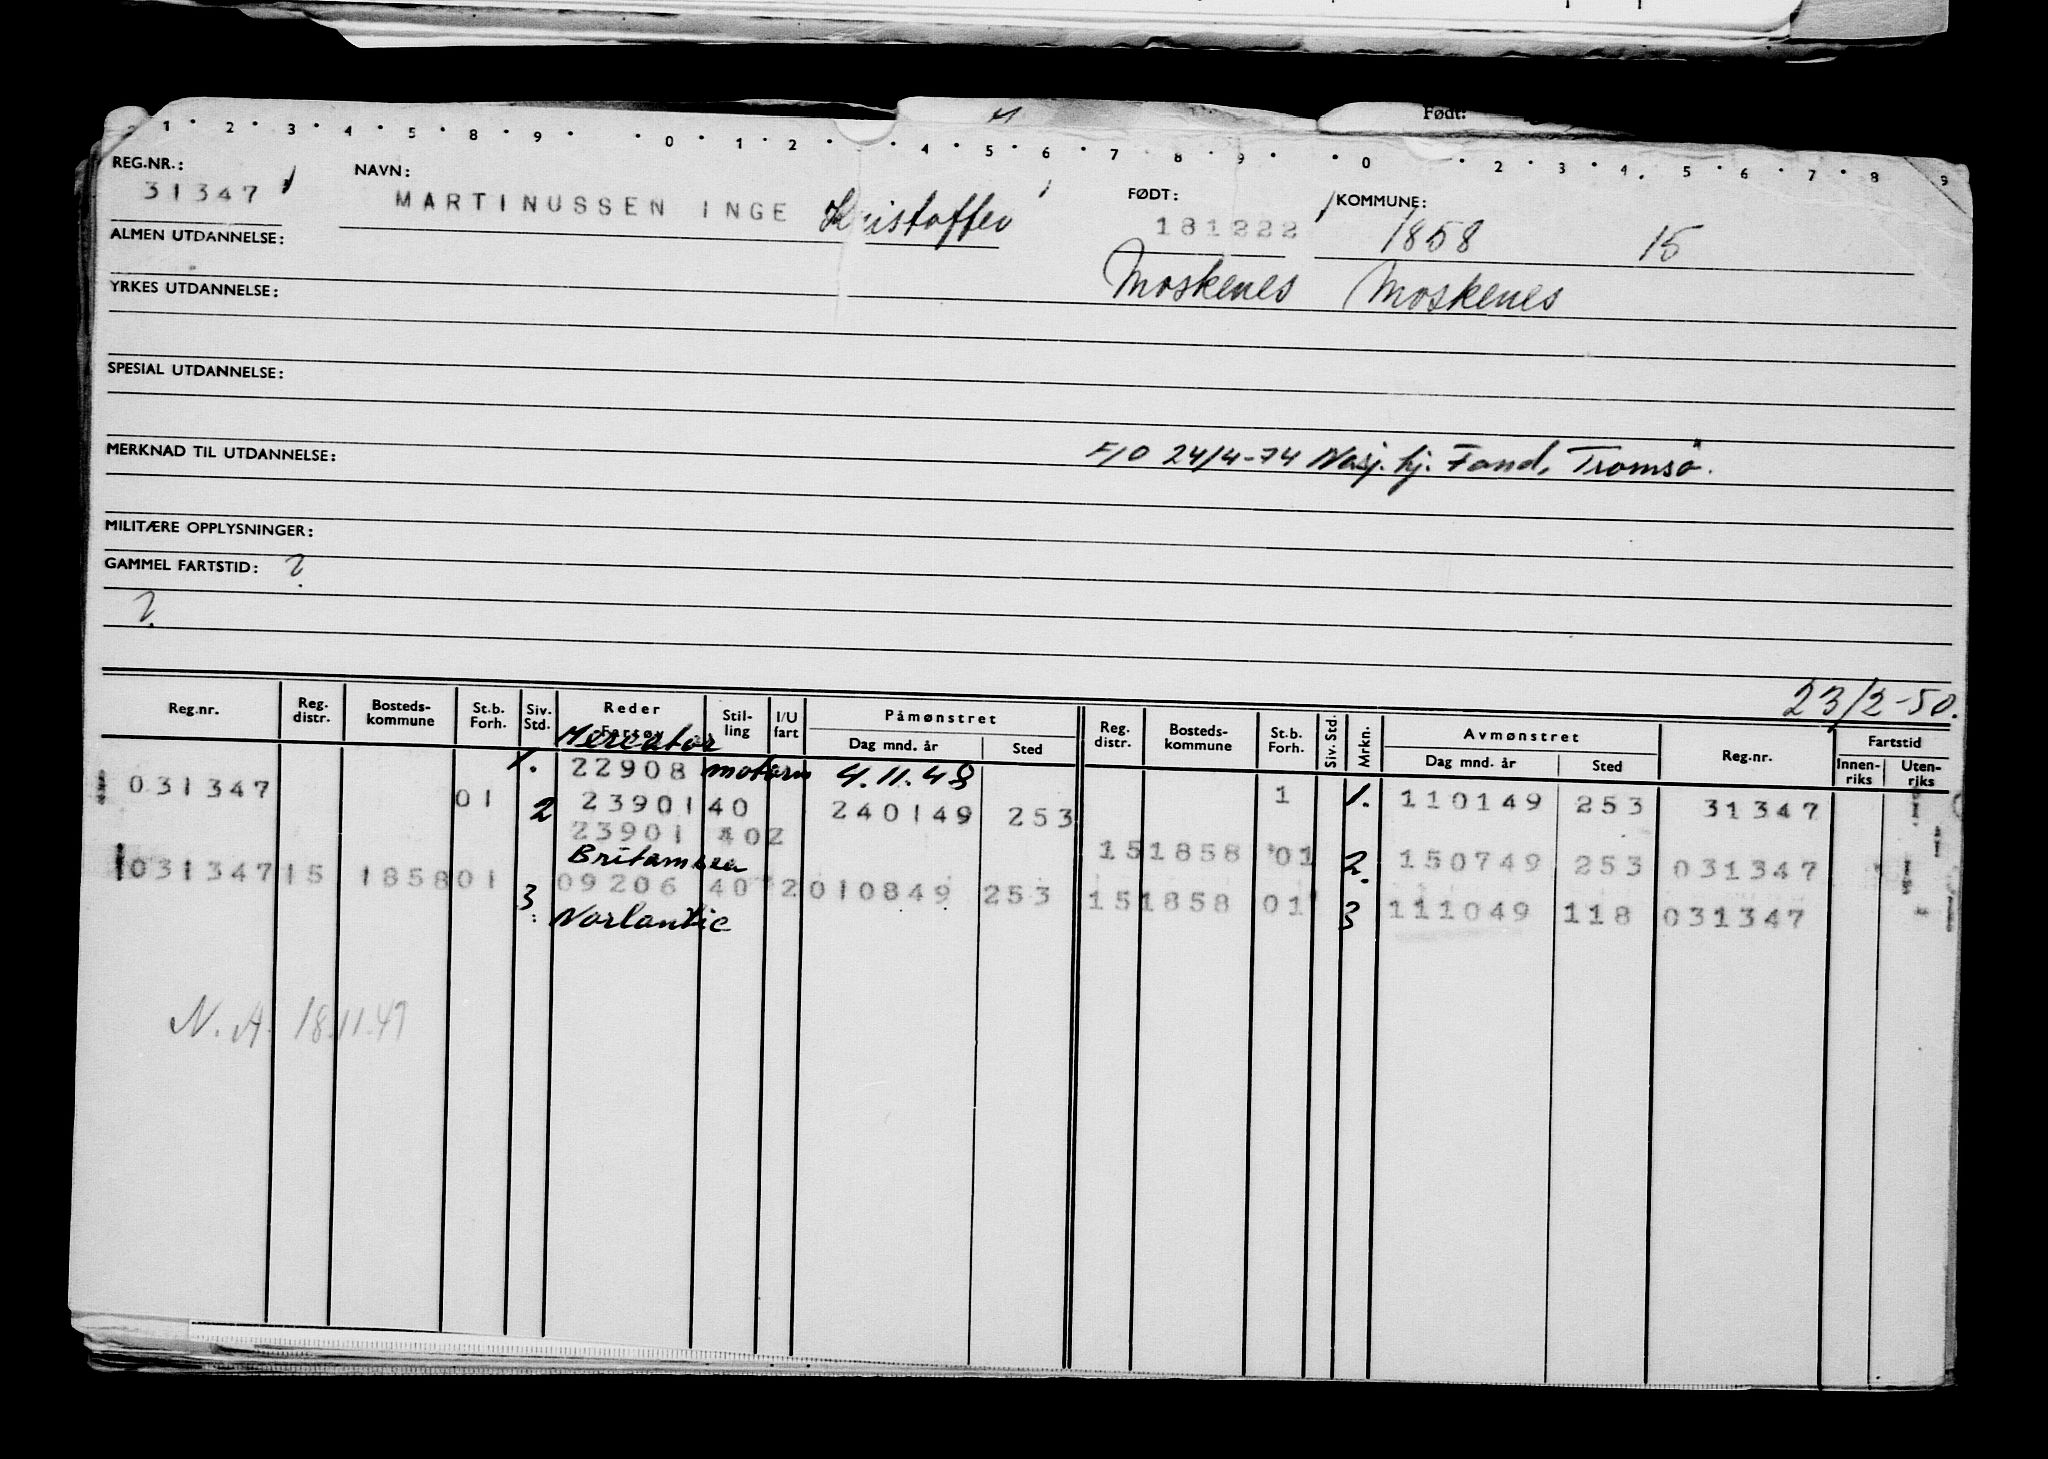 Født:
1 2 3 4 5 8 9 0 1 2 4 5 6 7 8 9 0 2 3 4 5 6 7 8 9
REG.NR.: NAVN: FØDT: KOMMUNE:
31347 MARTINUSSEN INGE Kristoffer 181222 1858 15
ALMEN UTDANNELSE:
Moskenes Moskenes
YRKES UTDANNELSE:
SPESIAL UTDANNELSE:
MERKNAD TIL UTDANNELSE: F/O 24/4-74 Nasj. hj. Fond, Tromsö.
MILITÆRE OPPLYSNINGER:
GAMMEL FARTSTID: ?
?
23/2-50.
Reg.nr. Reg. distr. Bosteds-kommune St.b. Forh. Siv. Std. Reder Stil-ling I/U fart Påmønstret Reg. distr. Bosteds-kommune St.b. Forh. Siv. Std. Mrkn. Avmønstret Reg.nr. Fartstid
Dag mnd. år Sted Dag mnd. år Sted Innen-riks Uten-riks
Mercator
1. 22908 motorm 4.11.48
031347 01 2 23901 40 240149 253 1 1. 110149 253 31347
23901 402 151858 01 2. 150749 253 031347
Britamsea
031347 15 1858 01 3 09206 40 2 010849 253 151858 01 3 111049 118 031347
Norlantic
N.A. 18.11.49